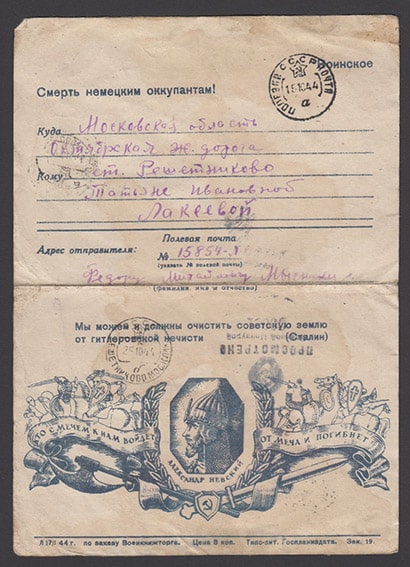 ПОЛЕВАЯ ПОЧТА СССР
15 10 44
а
Воинское
Смерть немецким оккупантам!
Куда Московская область
Октябрская ж. дорога
Кому ст. Решетниково
Татьяне Ивановной
Лакеевой
Полевая почта
Адрес отправителя: № 15854-Л
(указать № полевой почты)
Федору Михайловичу
(фамилия, имя и отчество)
Мы можем и должны очистить советскую землю
от гитлеровской нечисти (Сталин)
ПРОСМОТРЕНО
КТО С МЕЧЕМ К НАМ ВОЙДЕТ ОТ МЕЧА И ПОГИБНЕТ
АЛЕКСАНДР НЕВСКИЙ
44 г. по заказу Военкнижторга. Цена 8 коп. Типо-лит. Госпланиздата. Зак. 19.